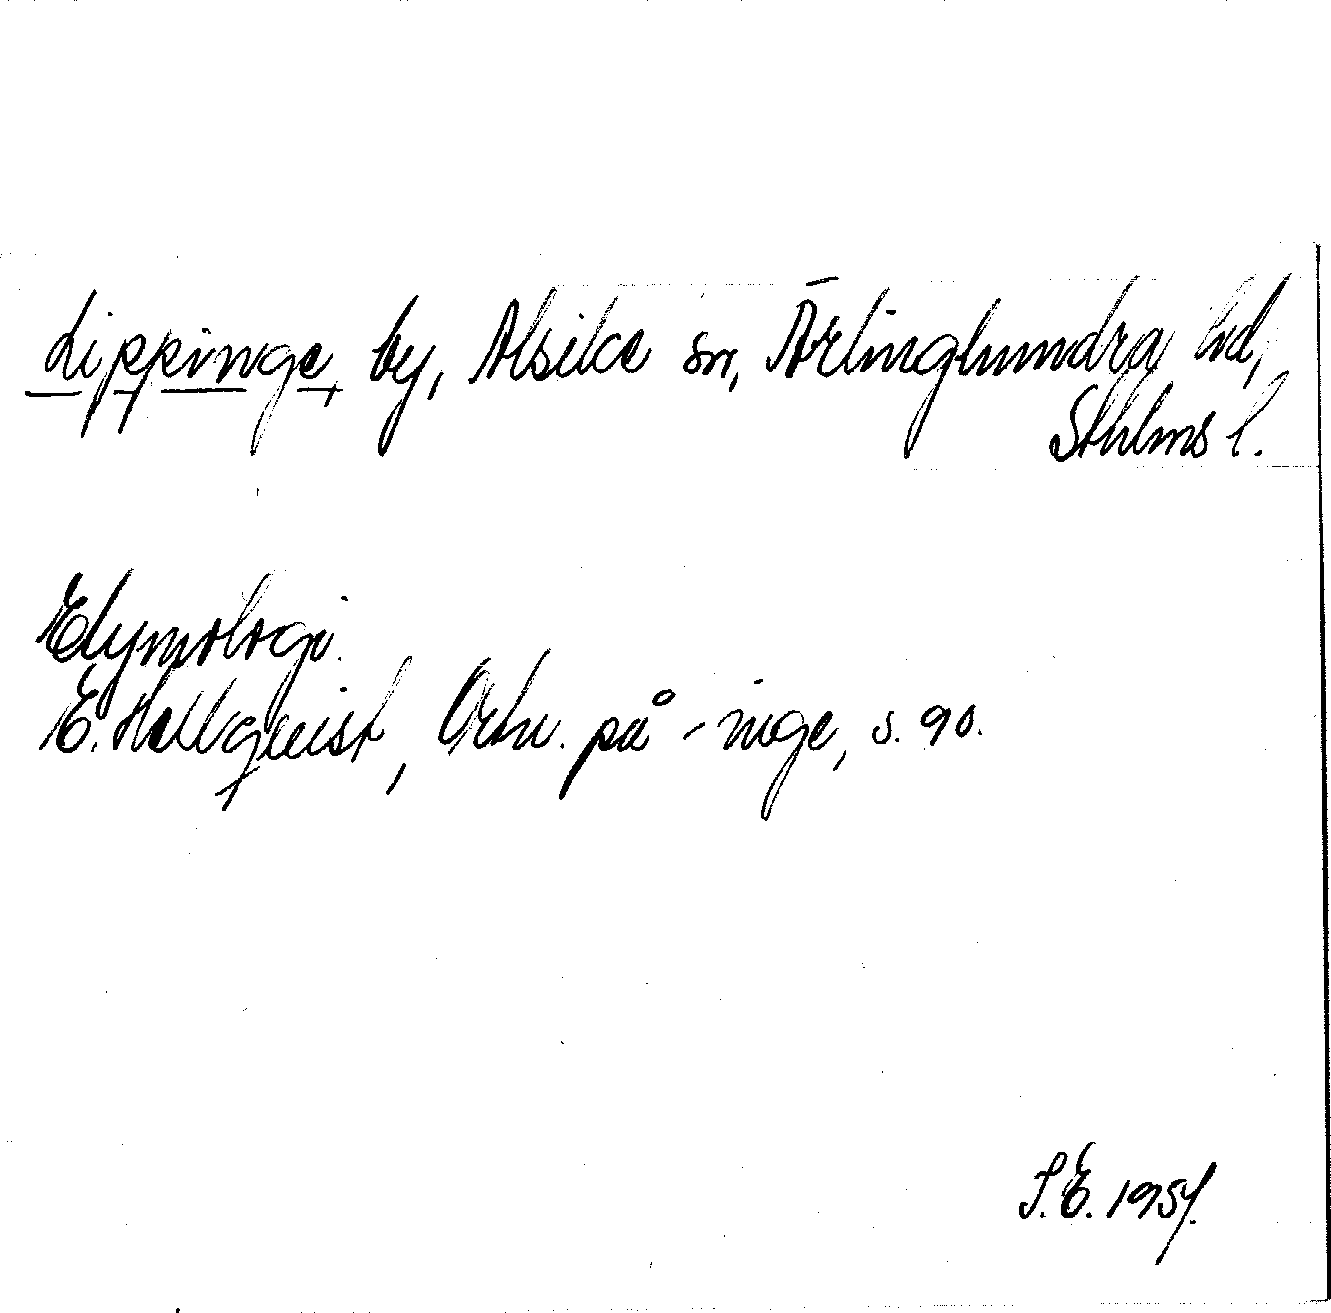 Lippinge, by, Alsike sn, Ärlinghundra hd,
Sthlms l.
Etymologi.
E. Hellquist, Ortn. på -inge, s. 90.
S.E. 1957.